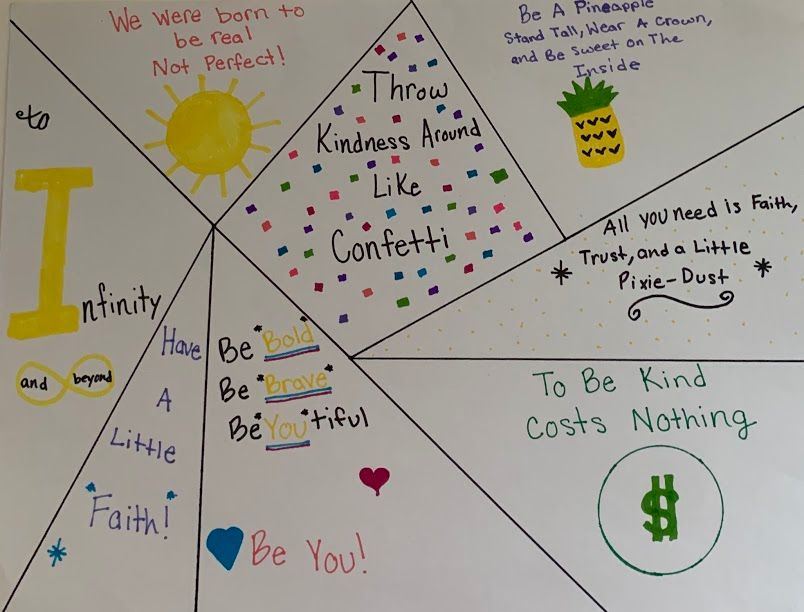 We were born to
be real
Not Perfect!
Throw
Kindness Around
Like
Confetti
Be A Pineapple
Stand Tall, Wear A Crown,
and Be Sweet on The
Inside
to
Infinity
and beyond
All you need is Faith,
Trust, and a Little
Pixie-Dust
Have
A
Little
"Faith!"
Be "Bold"
Be "Brave"
Be "You" tiful
Be You!
To Be Kind
Costs Nothing
$